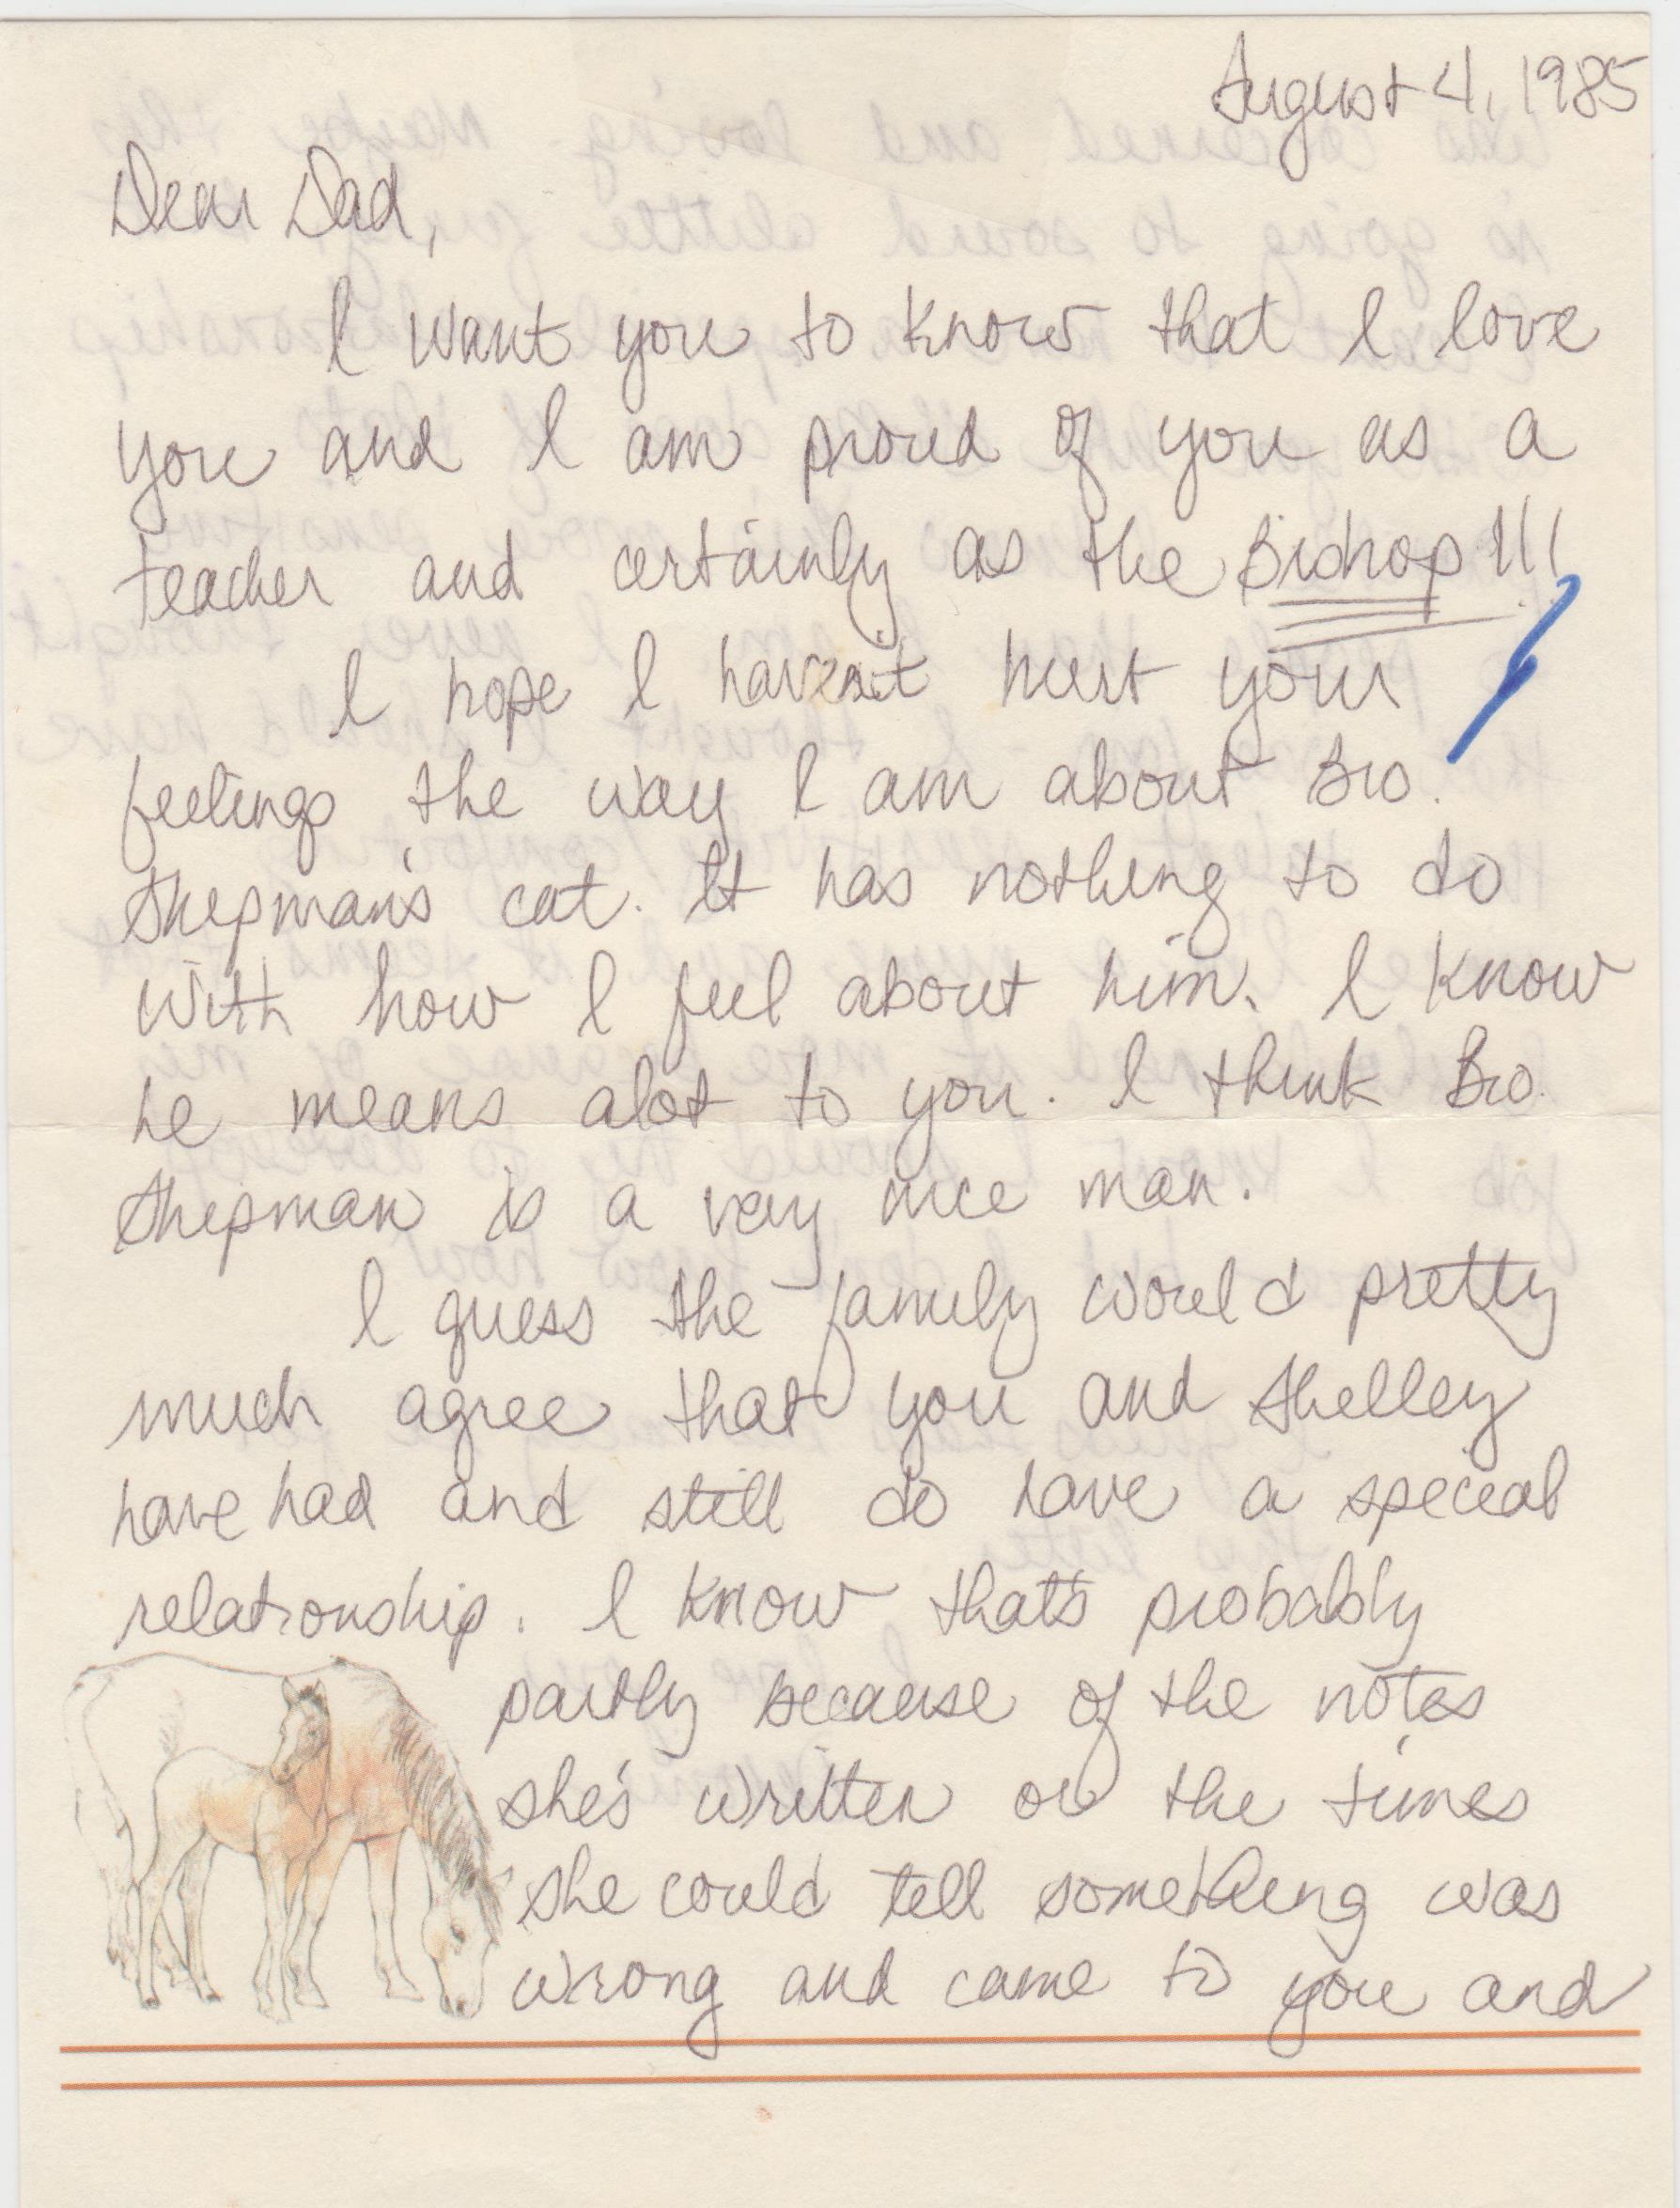 August 4, 1985
Dear Dad,
I want you to know that I love
you and I am proud of you as a
teacher and certainly as the Bishop!!!
I hope I haven't hurt your
feelings the way I am about Bro.
Shepman's cat. It has nothing to do
with how I feel about him. I know
he means alot to you. I think Bro.
Shepman is a very nice man.
I guess the family would pretty
much agree that you and Shelley
have had and still do have a special
relationship. I know that's probably
partly because of the notes
she's written or the times
she could tell something was
wrong and came to you and